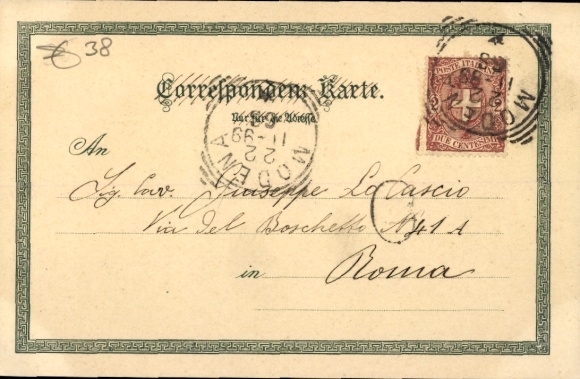 € 38
POSTE ITALIANE
DUE CENT
Correspondenz-Karte.
Nur für die Adresse
MODENA
11-99
MODENA
An
Sig. Cav. Giuseppe Lo Cascio
Via del Boschetto N 41 A
in Roma